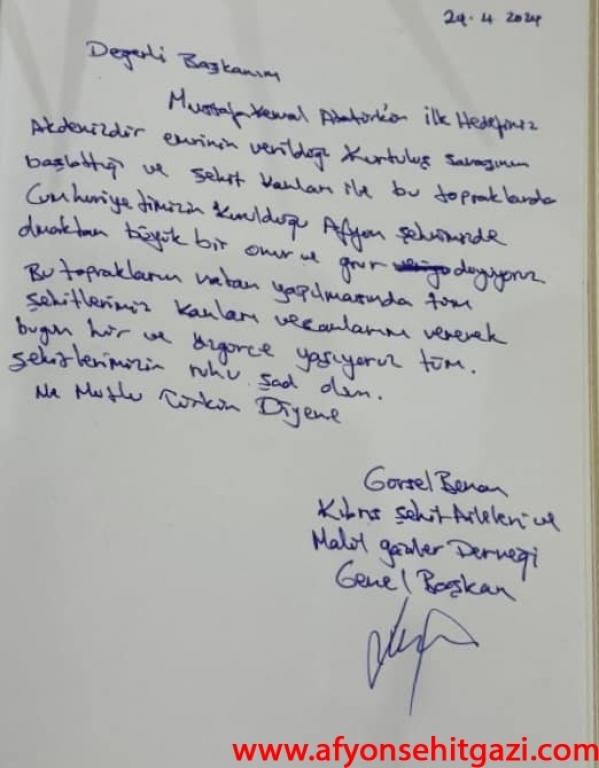 29.4.2024
Değerli Başkanım
Mustafa Kemal Atatürk'ün ilk Hedefiniz
Akdenizdir emrinin verildiği Kurtuluş savaşının
başlattığı ve şehit kanları ile bu topraklarda
Cumhuriyetimizin kurulduğu Afyon şehrimizde
olmaktan büyük bir onur ve gurur duyuyoruz
Bu toprakların vatan yapılmasında tüm
şehitlerimiz kanları ve canlarını vererek
bugün hür ve özgürce yaşıyoruz tüm.
şehitlerimizin ruhu şad olsun.
Ne Mutlu Türküm Diyene
Gürsel Benan
Kıbrıs Şehit Aileleri ve
Malül gaziler Derneği
Genel Başkan
www.afyonsehitgazi.com